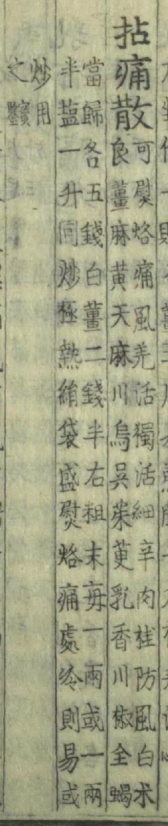 拈痛散
可熨烙痛風羌活獨活細辛肉桂防風白朮
良薑麻黃天麻川烏吳茱萸乳香川椒全蝎
當歸各五錢白薑二錢半右粗末每一兩或一兩
半盐一升同炒極熱絹袋盛熨烙痛處冷則易或
炒用
之